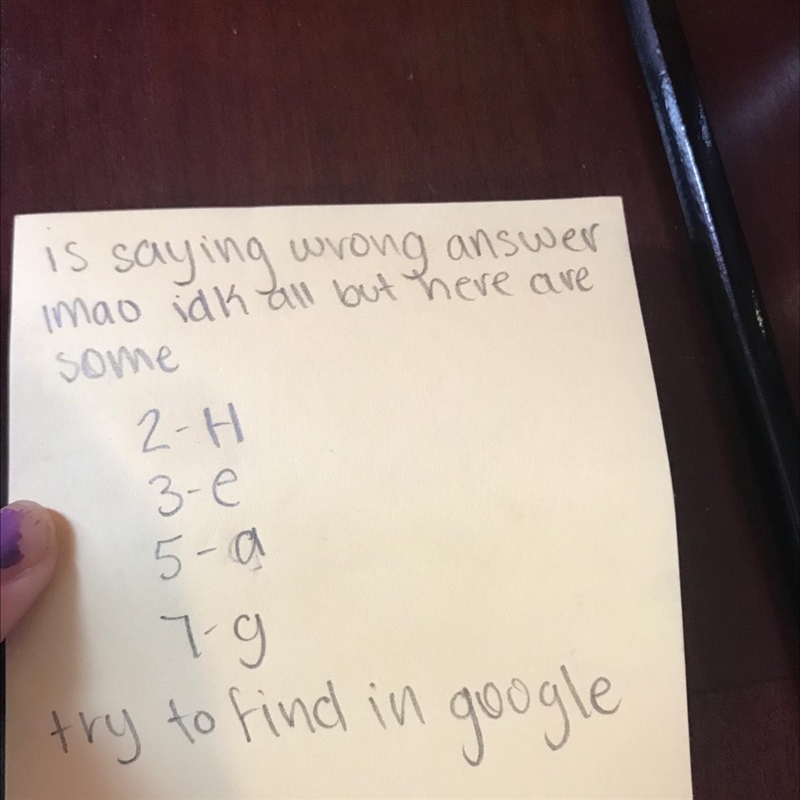 is saying wrong answer
lmao idk all but here are
some
2-H
3-e
5-a
7-g
try to find in google